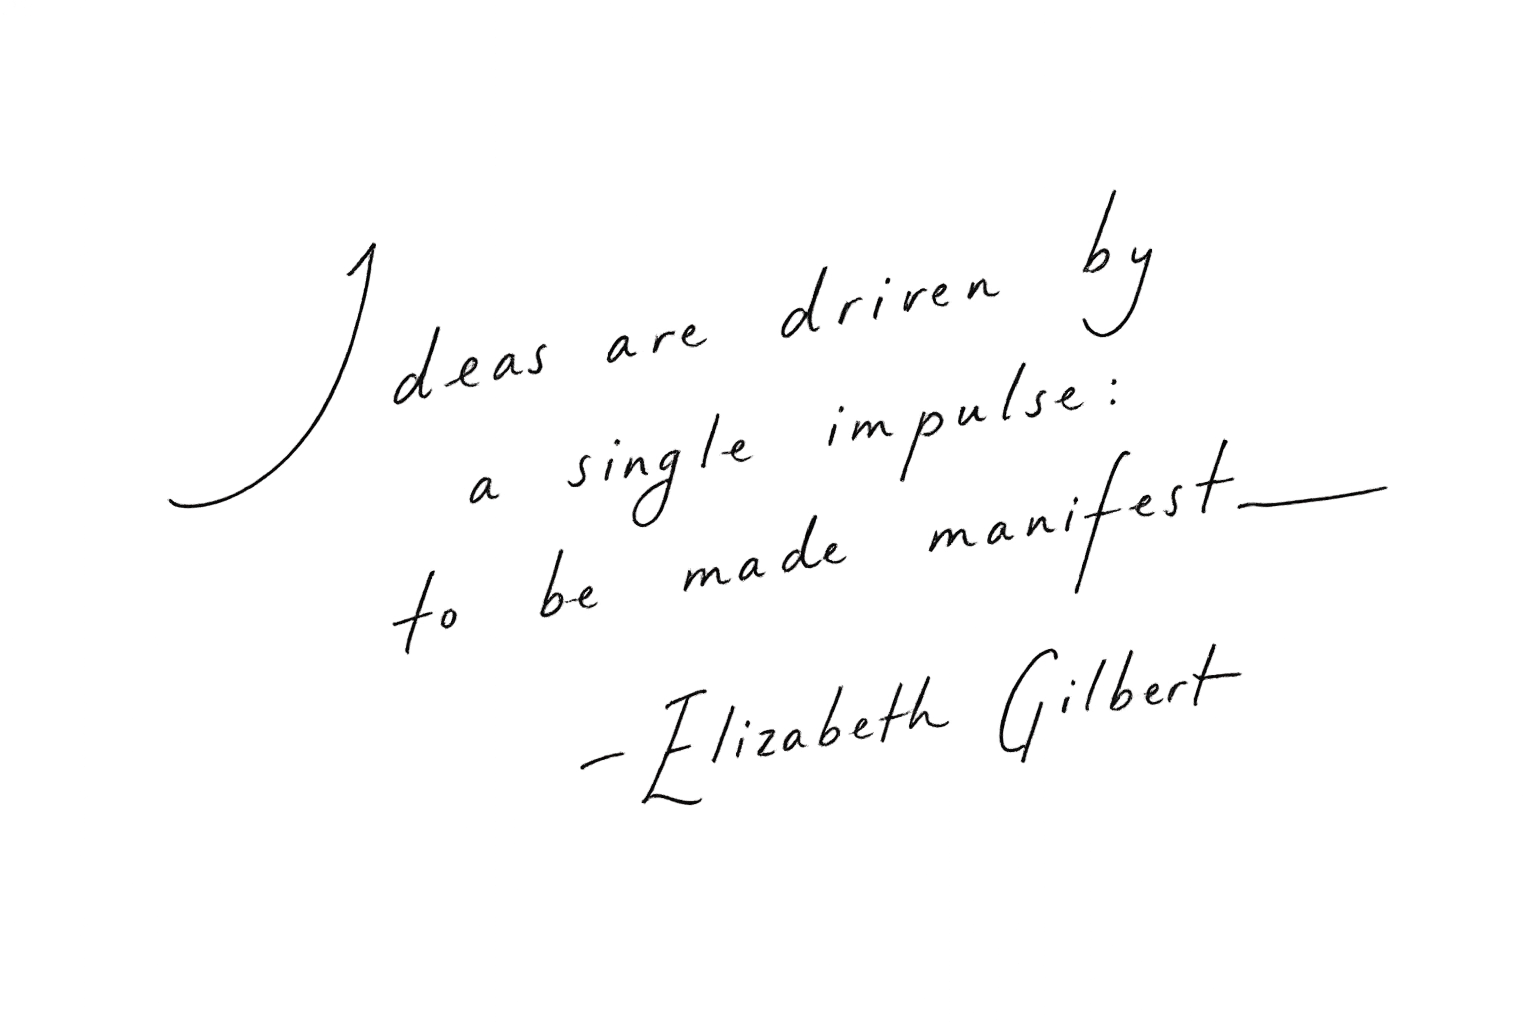 Ideas are driven by
a single impulse:
to be made manifest
- Elizabeth Gilbert